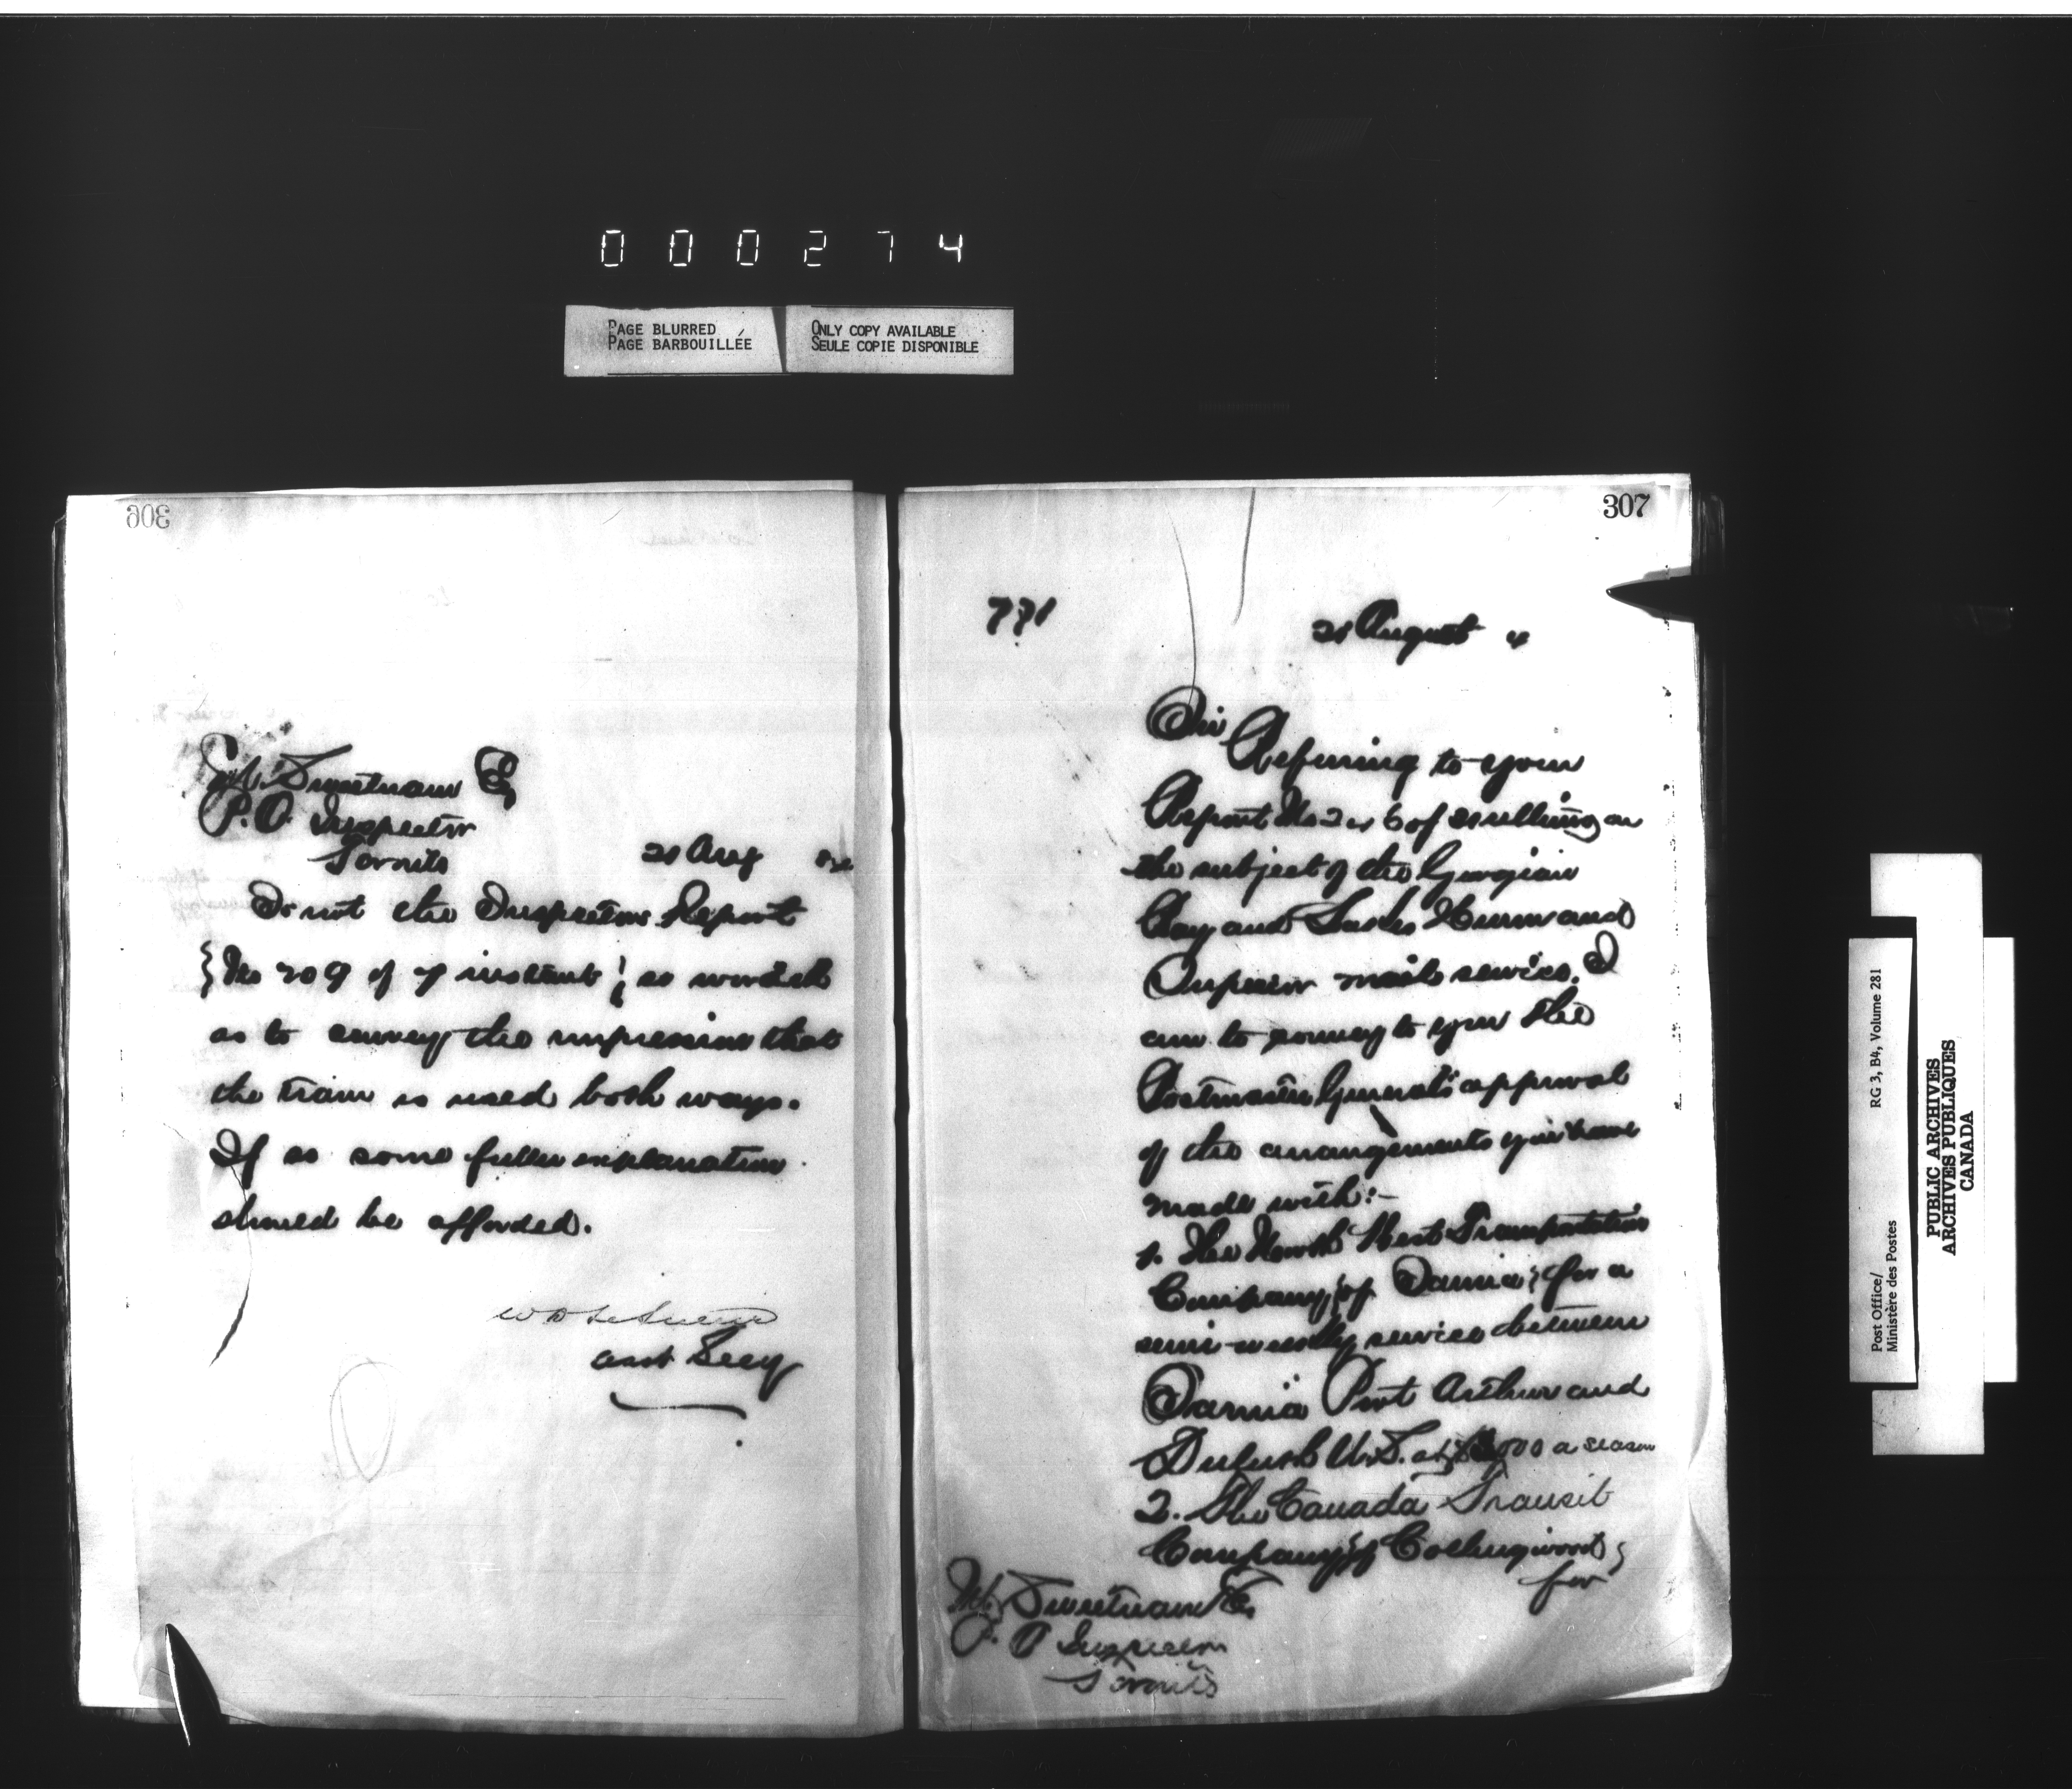 000274
PAGE BLURRED
PAGE BARBOUILLÉE
ONLY COPY AVAILABLE
SEULE COPIE DISPONIBLE
306
M. Sweetnam Eq
P.O. Inspector
Toronto
21 Aug
Is not the Inspectors Report
{ No 709 of 7 instant } so worded
as to convey the impression that
the train is used both ways.
If so some fuller explanation
should be afforded.
asst Secy
307
771
21 August 4
Sir
Referring to your
Report No of on
the subject of the Georgian
Bay and Lakes Huron and
Superior mail service, I
am to convey to you the
Postmaster General's approval
of the arrangements you have
made with:-
1. The North West Transportation
Company, of Sarnia, for a
semi-weekly service between
Sarnia Port Arthur and
Duluth U.S. at a season
2. The Canada Transit
Company of Collingwood,
for
M. Sweetnam Eq
P. O Inspector
Toronto
Post Office/
Ministère des Postes
RG 3, B4, Volume 281
PUBLIC ARCHIVES
ARCHIVES PUBLIQUES
CANADA